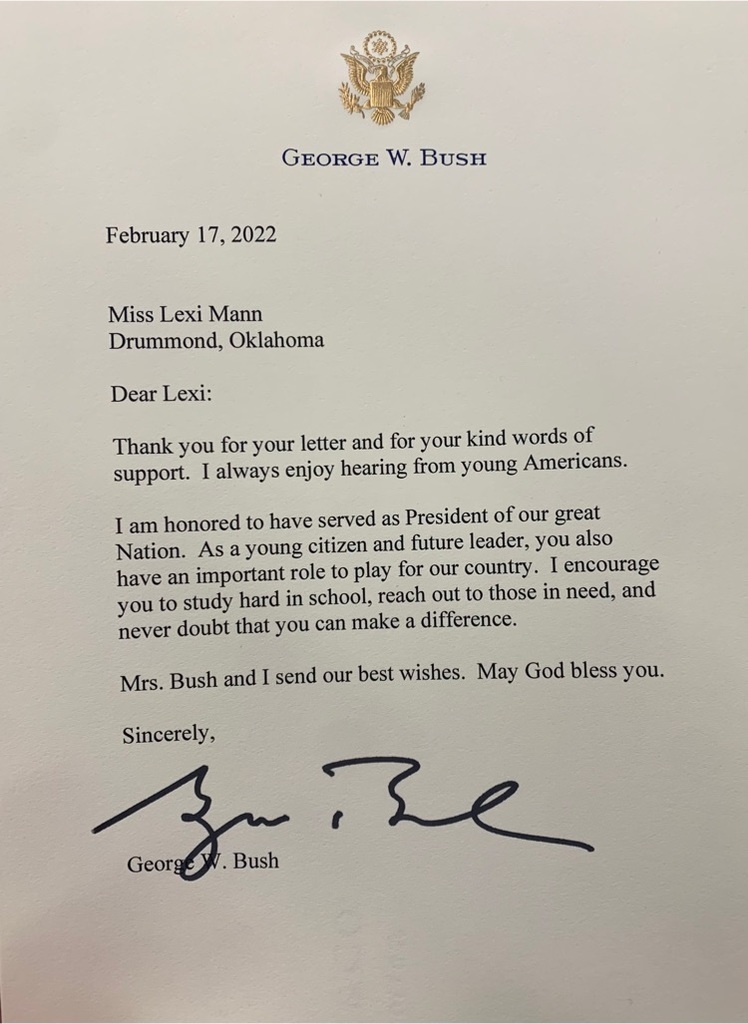 GEORGE W. BUSH
February 17, 2022
Miss Lexi Mann
Drummond, Oklahoma
Dear Lexi:
Thank you for your letter and for your kind words of
support.  I always enjoy hearing from young Americans.
I am honored to have served as President of our great
Nation.  As a young citizen and future leader, you also
have an important role to play for our country.  I encourage
you to study hard in school, reach out to those in need, and
never doubt that you can make a difference.
Mrs. Bush and I send our best wishes.  May God bless you.
Sincerely,
George W. Bush